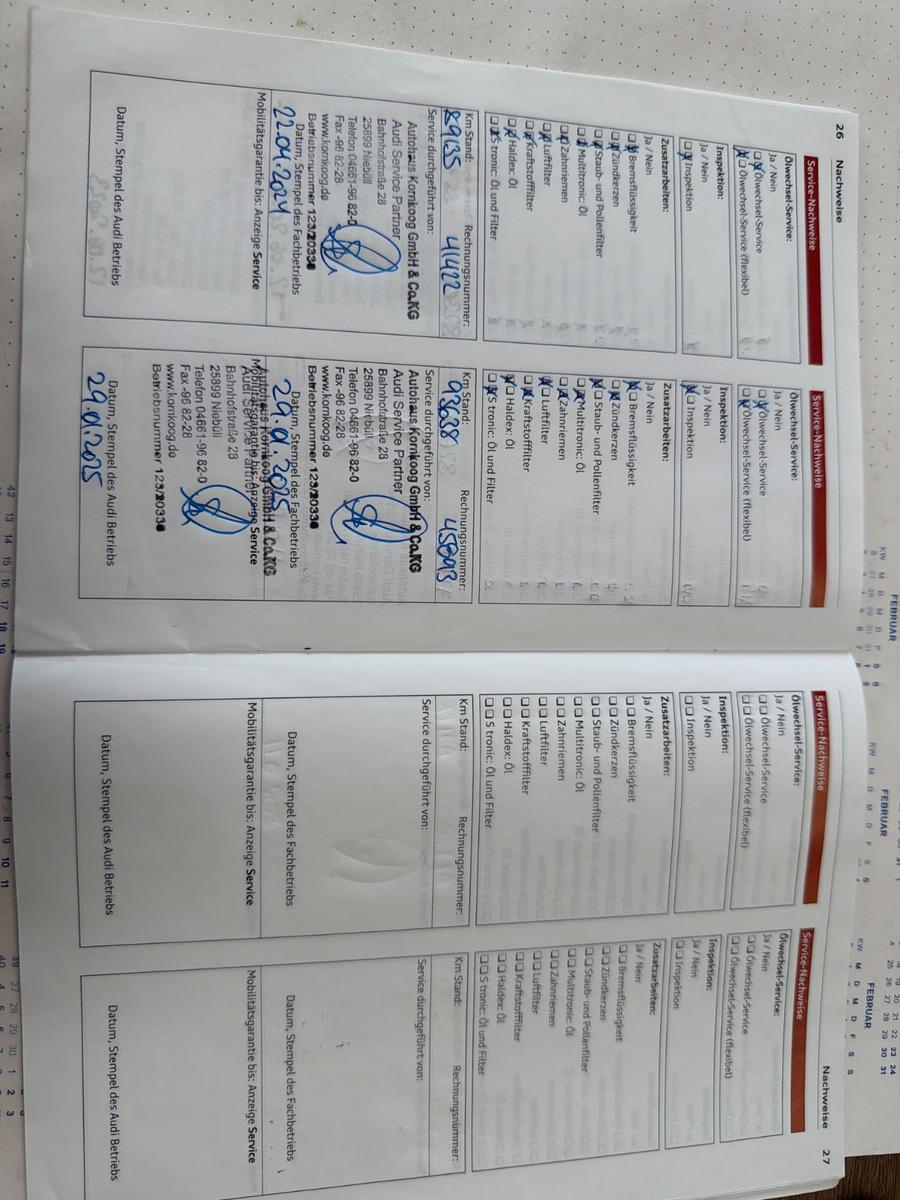 26 Nachweise
Service-Nachweise
Ölwechsel-Service:
Ja / Nein
Ölwechsel-Service
Ölwechsel-Service (flexibel)
Inspektion:
Ja / Nein
Inspektion
Zusatzarbeiten:
Ja / Nein
Bremsflüssigkeit
Zündkerzen
Staub- und Pollenfilter
Multitronic: Öl
Zahnriemen
Luftfilter
Kraftstofffilter
Haldex: Öl
S tronic: Öl und Filter
Km Stand: Rechnungsnummer:
89135 41422
Service durchgeführt von:
Autohaus Kornkoog GmbH & Co.KG
Audi Service Partner
Bahnhofstraße 28
25899 Niebüll
Telefon 04661-96 82-0
Fax -96 82-28
www.kornkoog.de
Betriebsnummer 123/20330
Datum, Stempel des Fachbetriebs
22.04.2024
Mobilitätsgarantie bis: Anzeige Service
Datum, Stempel des Audi Betriebs
Service-Nachweise
Ölwechsel-Service:
Ja / Nein
Ölwechsel-Service
Ölwechsel-Service (flexibel)
Inspektion:
Ja / Nein
Inspektion
Zusatzarbeiten:
Ja / Nein
Bremsflüssigkeit
Zündkerzen
Staub- und Pollenfilter
Multitronic: Öl
Zahnriemen
Luftfilter
Kraftstofffilter
Haldex: Öl
S tronic: Öl und Filter
Km Stand: Rechnungsnummer:
93638 45093
Service durchgeführt von:
Autohaus Kornkoog GmbH & Co.KG
Audi Service Partner
Bahnhofstraße 28
25899 Niebüll
Telefon 04661-96 82-0
Fax -96 82-28
www.kornkoog.de
Betriebsnummer 123/20330
Datum, Stempel des Fachbetriebs
29.01.2025
Autohaus Kornkoog GmbH & Co.KG
Mobilitätsgarantie bis: Anzeige Service
Audi Service Partner
Bahnhofstraße 28
25899 Niebüll
Telefon 04661-96 82-0
Fax -96 82-28
www.kornkoog.de
Betriebsnummer 123/20330
Datum, Stempel des Audi Betriebs
29.01.2025
Service-Nachweise
Ölwechsel-Service:
Ja / Nein
Ölwechsel-Service
Ölwechsel-Service (flexibel)
Inspektion:
Ja / Nein
Inspektion
Zusatzarbeiten:
Ja / Nein
Bremsflüssigkeit
Zündkerzen
Staub- und Pollenfilter
Multitronic: Öl
Zahnriemen
Luftfilter
Kraftstofffilter
Haldex: Öl
S tronic: Öl und Filter
Km Stand: Rechnungsnummer:
Service durchgeführt von:
Datum, Stempel des Fachbetriebs
Mobilitätsgarantie bis: Anzeige Service
Datum, Stempel des Audi Betriebs
Nachweise 27
Service-Nachweise
Ölwechsel-Service:
Ja / Nein
Ölwechsel-Service
Ölwechsel-Service (flexibel)
Inspektion:
Ja / Nein
Inspektion
Zusatzarbeiten:
Ja / Nein
Bremsflüssigkeit
Zündkerzen
Staub- und Pollenfilter
Multitronic: Öl
Zahnriemen
Luftfilter
Kraftstofffilter
Haldex: Öl
S tronic: Öl und Filter
Km Stand: Rechnungsnummer:
Service durchgeführt von:
Datum, Stempel des Fachbetriebs
Mobilitätsgarantie bis: Anzeige Service
Datum, Stempel des Audi Betriebs
FEBRUAR
FEBRUAR
FEBRUAR